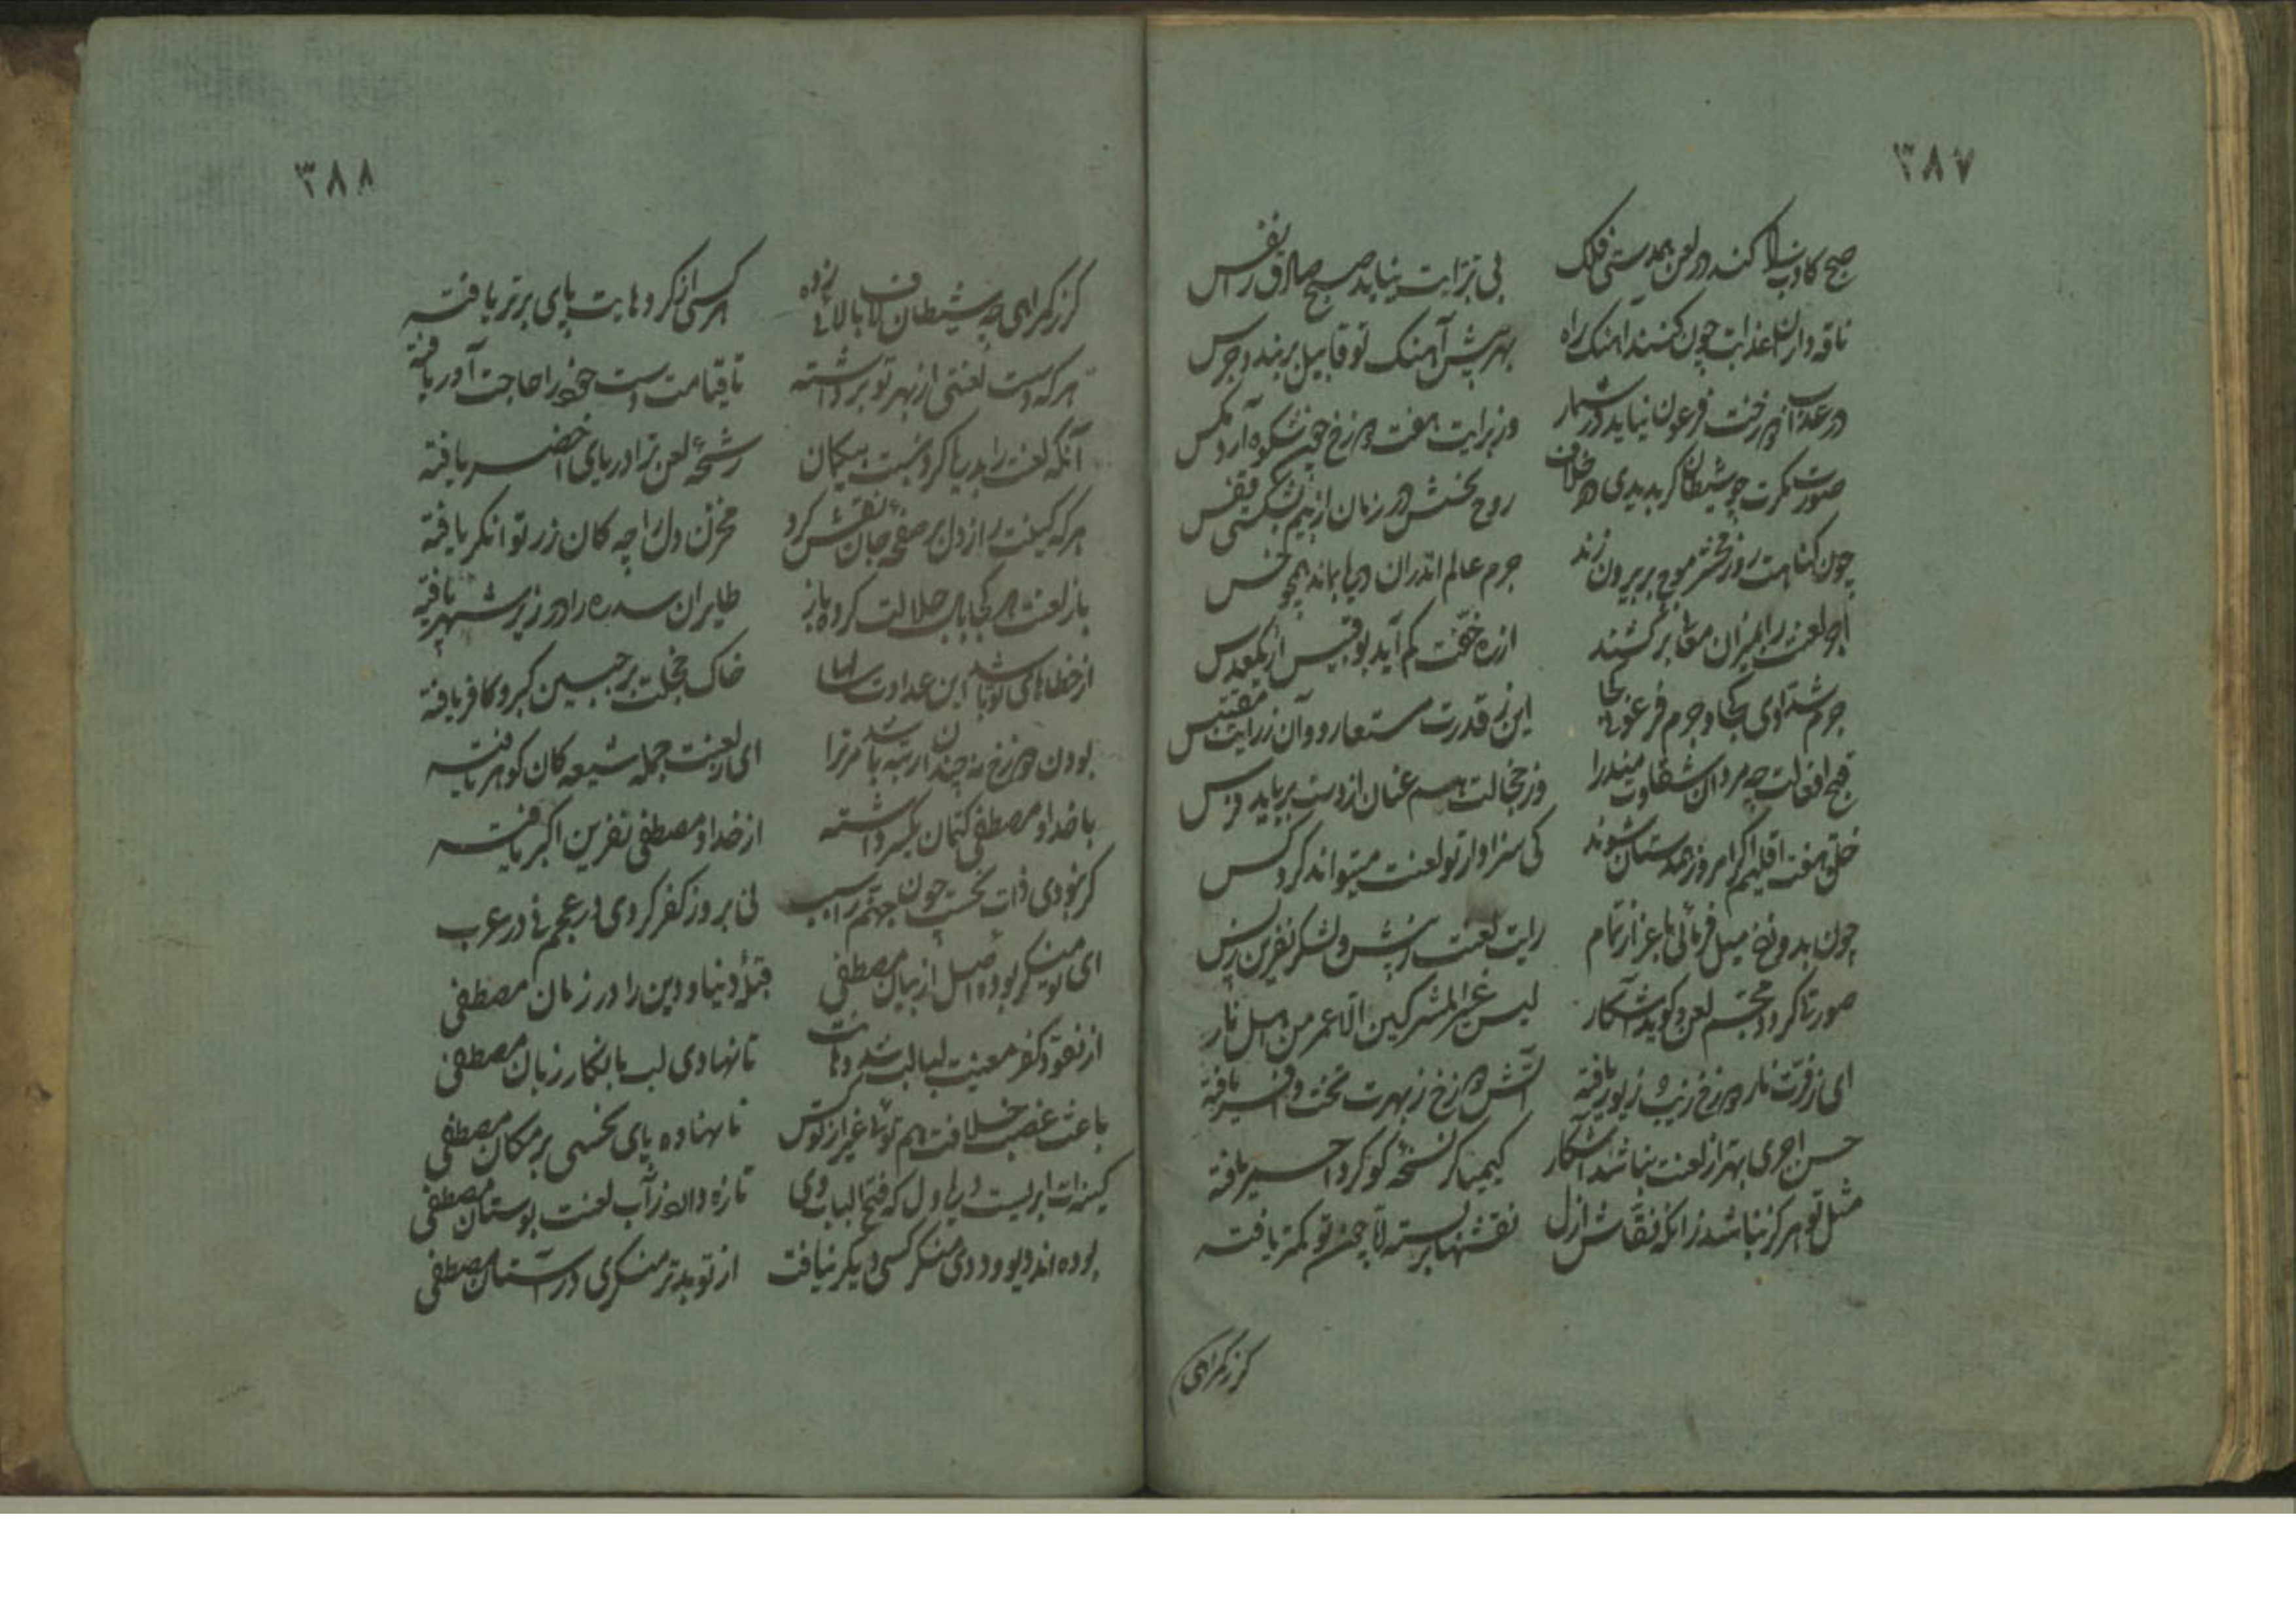 ٣٨٧
صبح کاذب کند در لعن همدستی فلک
بی تبرایت نیاید صبح صادق را نفس
ناقه داران عذابت چون کنند آهنک راه
بهر پیش آهنک تو قابیل بربندد جرس
در عذاب رخت فرعون نیاید در شمار
دوزخ چون شکوه آرد مکس
صورت مکرت چو شیطان کر بدیدی در خلاف
روح نحسش در زمان از بیم بشکستی قفس
چون کناهت روز محشر موج بر بیرون زند
جرم عالم اندران دریا بماند همچو خس
لعنت را میزان مقابر کشند
کم آید بوقبیس از یکعدس
جرم شدادی کجا و جرم فرعونی کجا
این ز قدرت مستعار و وآن ز رایت مقتبس
قبح افعالت چه مردان شقاوت میندرا
وز خجالت هم عنان از دست برباید فرس
خلق هفت اقلیم اکر امروز همدستان شوند
کی سزاوار تو لعنت میتواند کرد کس
چون بدوزخ میل فرمائی باعزاز تمام
رایت لعنت ز پیش و لشکر نفرین ز پس
صورتا کردد مجسم لعن و کوید آشکار
لیس غیر المشرکین الا عمر من اهل نار
ای ز فرت نار دوزخ زیب و زیور یافته
آتش دوزخ ز بهرت تخت و افسر یافته
حسن اجری بهتر از لعنت نباشد آشکار
کیمیاکر نسخهٔ کوکرد احمر یافته
مثل تو هرکز نباشد زانکه نقاش ازل
نقشها بسته لا چون تو کمتر یافته
کرز کمراهی
٣٨٨
کرز کمراهی چه شیطان لاف بالائی زده
هر کسی از کردهایت پای برتر یافته
هرکه دست لعنتی از بهر تو برداشته
تا قیامت دست خود را حاجت آور یافته
آنکه لعنت را بدریا کرد نسبت بیکمان
رشحهٔ لعن ترا دریای اخضر یافته
هرکه کینت را ز دل بر صفحهٔ جان نقش کرد
مخزن دل را چه کان زر توانکر یافته
باز لعنت هر کجا بال جلالت کرده باز
طایران سدره را در زیر شهپر یافته
از خطاهای تو باشد این عداوت سالها
خاک خجلت بر جبین کبر و کافر یافته
بودن دوزخ نه چندان رتبه باشد مر ترا
ای ز لعنت جمله شیعه کان کوهر یافته
با خدا و مصطفی کتمان یکسر داشته
از خدا و مصطفی نفرین اکبر یافته
کر نبودی ذات نحست چون جهنم را سبب
نی بروز کفر کردی در عجم نی در عرب
ای تو منکر بوده اصل از بیان مصطفی
فتنهٔ دنیا و دین را در زمان مصطفی
از نعوذ کفر معنیت لبالب شد دهانت
تا نهادی لب بانکار زبان مصطفی
باعث غصب خلافت هم توئی غیر از تو کس
نا نهاده پای نحسی بر مکان مصطفی
کینه‌ات ابریست ول که فتح الباب وی
تازه دارد ز آب لعنت بوستان مصطفی
بوده‌اند دیو و ددی منکر کسی دیکر نیافت
از تو بدتر منکری در آستان مصطفی